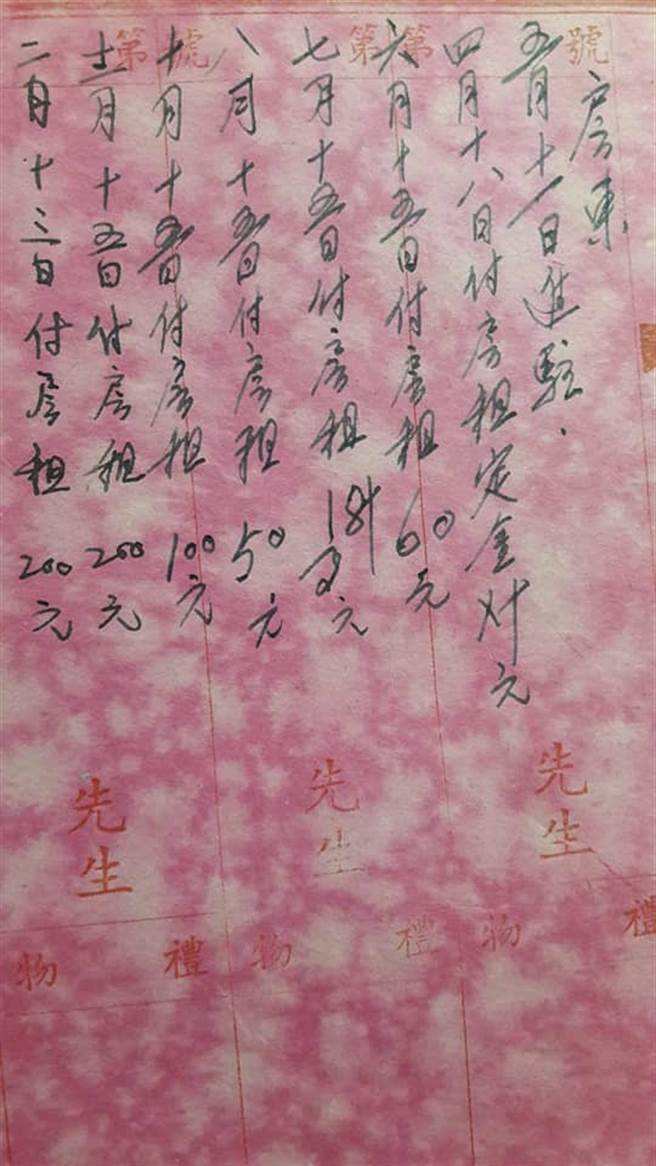 號 第 第 號 第
房東
五月十一日進駐.
四月十八日付房租定金 元
六月十五日付房租 60元
七月十五日付房租 元
八月十五日付房租 50元
十月十五日付房租 100元
十一月十五日付房租 200元
二月十三日付房租 200元
先生 先生 先生
禮物 禮物 禮物